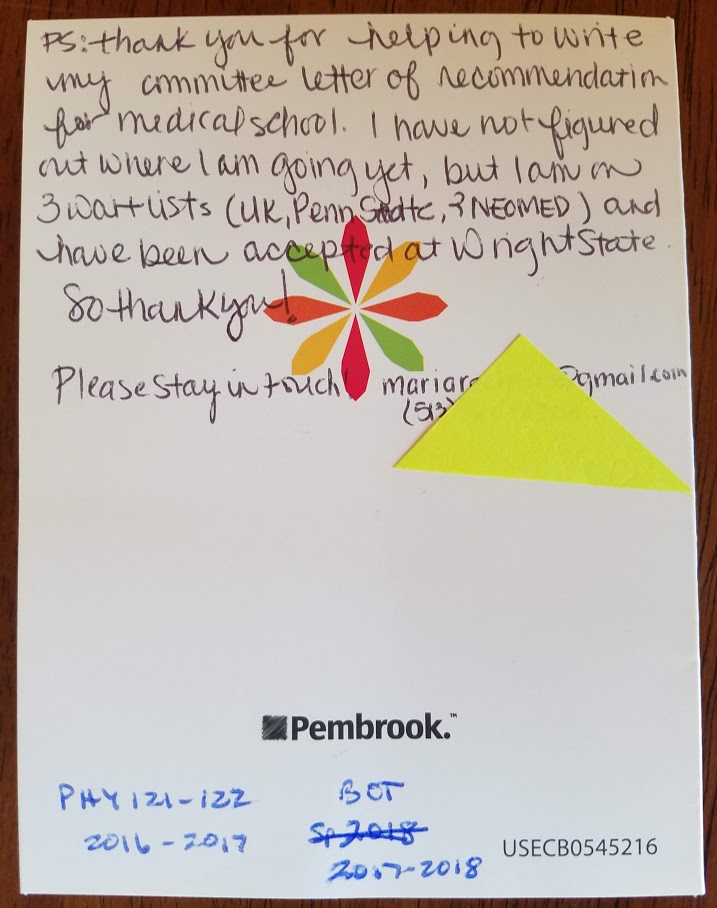 PS: thank you for helping to write
my committee letter of recommendation
for medical school. I have not figured
out where I am going yet, but I am on
3 waitlists (UK, Penn State, & NEOMED) and
have been accepted at Wright State.
So thank you!
Please stay in touch! @gmail.com
(513)
Pembrook.™
PHY 121-122
2016-2017
BOT
Sp 2018
2017-2018
USECB0545216